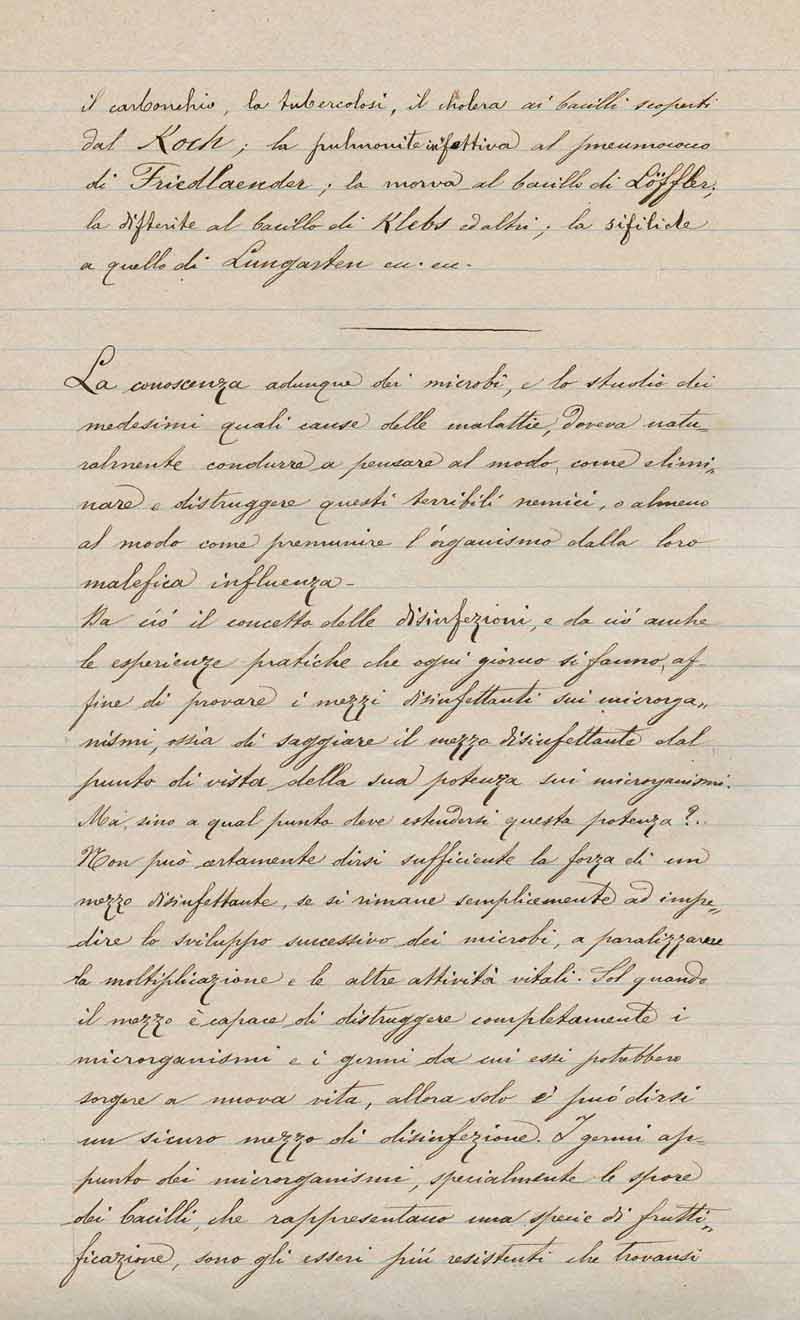 il carbonchio, la tubercolosi, il cholera ai bacilli scoperti
dal Koch; la pulmonite infettiva al pneumococco
di Friedlaender; la morva al bacillo di Löffler;
la difterite al bacillo di Klebs ed altri; la sifilide
a quello di Lungarten ecc. ecc.
La conoscenza adunque dei microbi, e lo studio dei
medesimi quali cause delle malattie, doveva natu=
ralmente condurre a pensare al modo, come elimi=
nare e distruggere questi terribili nemici, o almeno
al modo come premunire l'organismo dalla loro
malefica influenza -
Da ciò il concetto delle disinfezioni, e da ciò anche
le esperienze pratiche che ogni giorno si fanno, af=
fine di provare i mezzi disinfettanti sui microrga=
nismi, ossia di saggiare il mezzo disinfettante dal
punto di vista della sua potenza sui microrganismi.
Ma, sino a qual punto deve estendersi questa potenza?..
Non può certamente dirsi sufficiente la forza di un
mezzo disinfettante, se si rimane semplicemente ad impe=
dire lo sviluppo successivo dei microbi, a paralizzare
la moltiplicazione e le altre attività vitali. Sol quando
il mezzo è capace di distruggere completamente i
microrganismi e i germi da cui essi potrebbero
sorgere a nuova vita, allora solo può dirsi
un sicuro mezzo di disinfezione. I germi ap=
punto dei microrganismi, specialmente le spore
dei bacilli, che rappresentano una specie di frutti=
ficazione, sono gli esseri più resistenti che trovansi